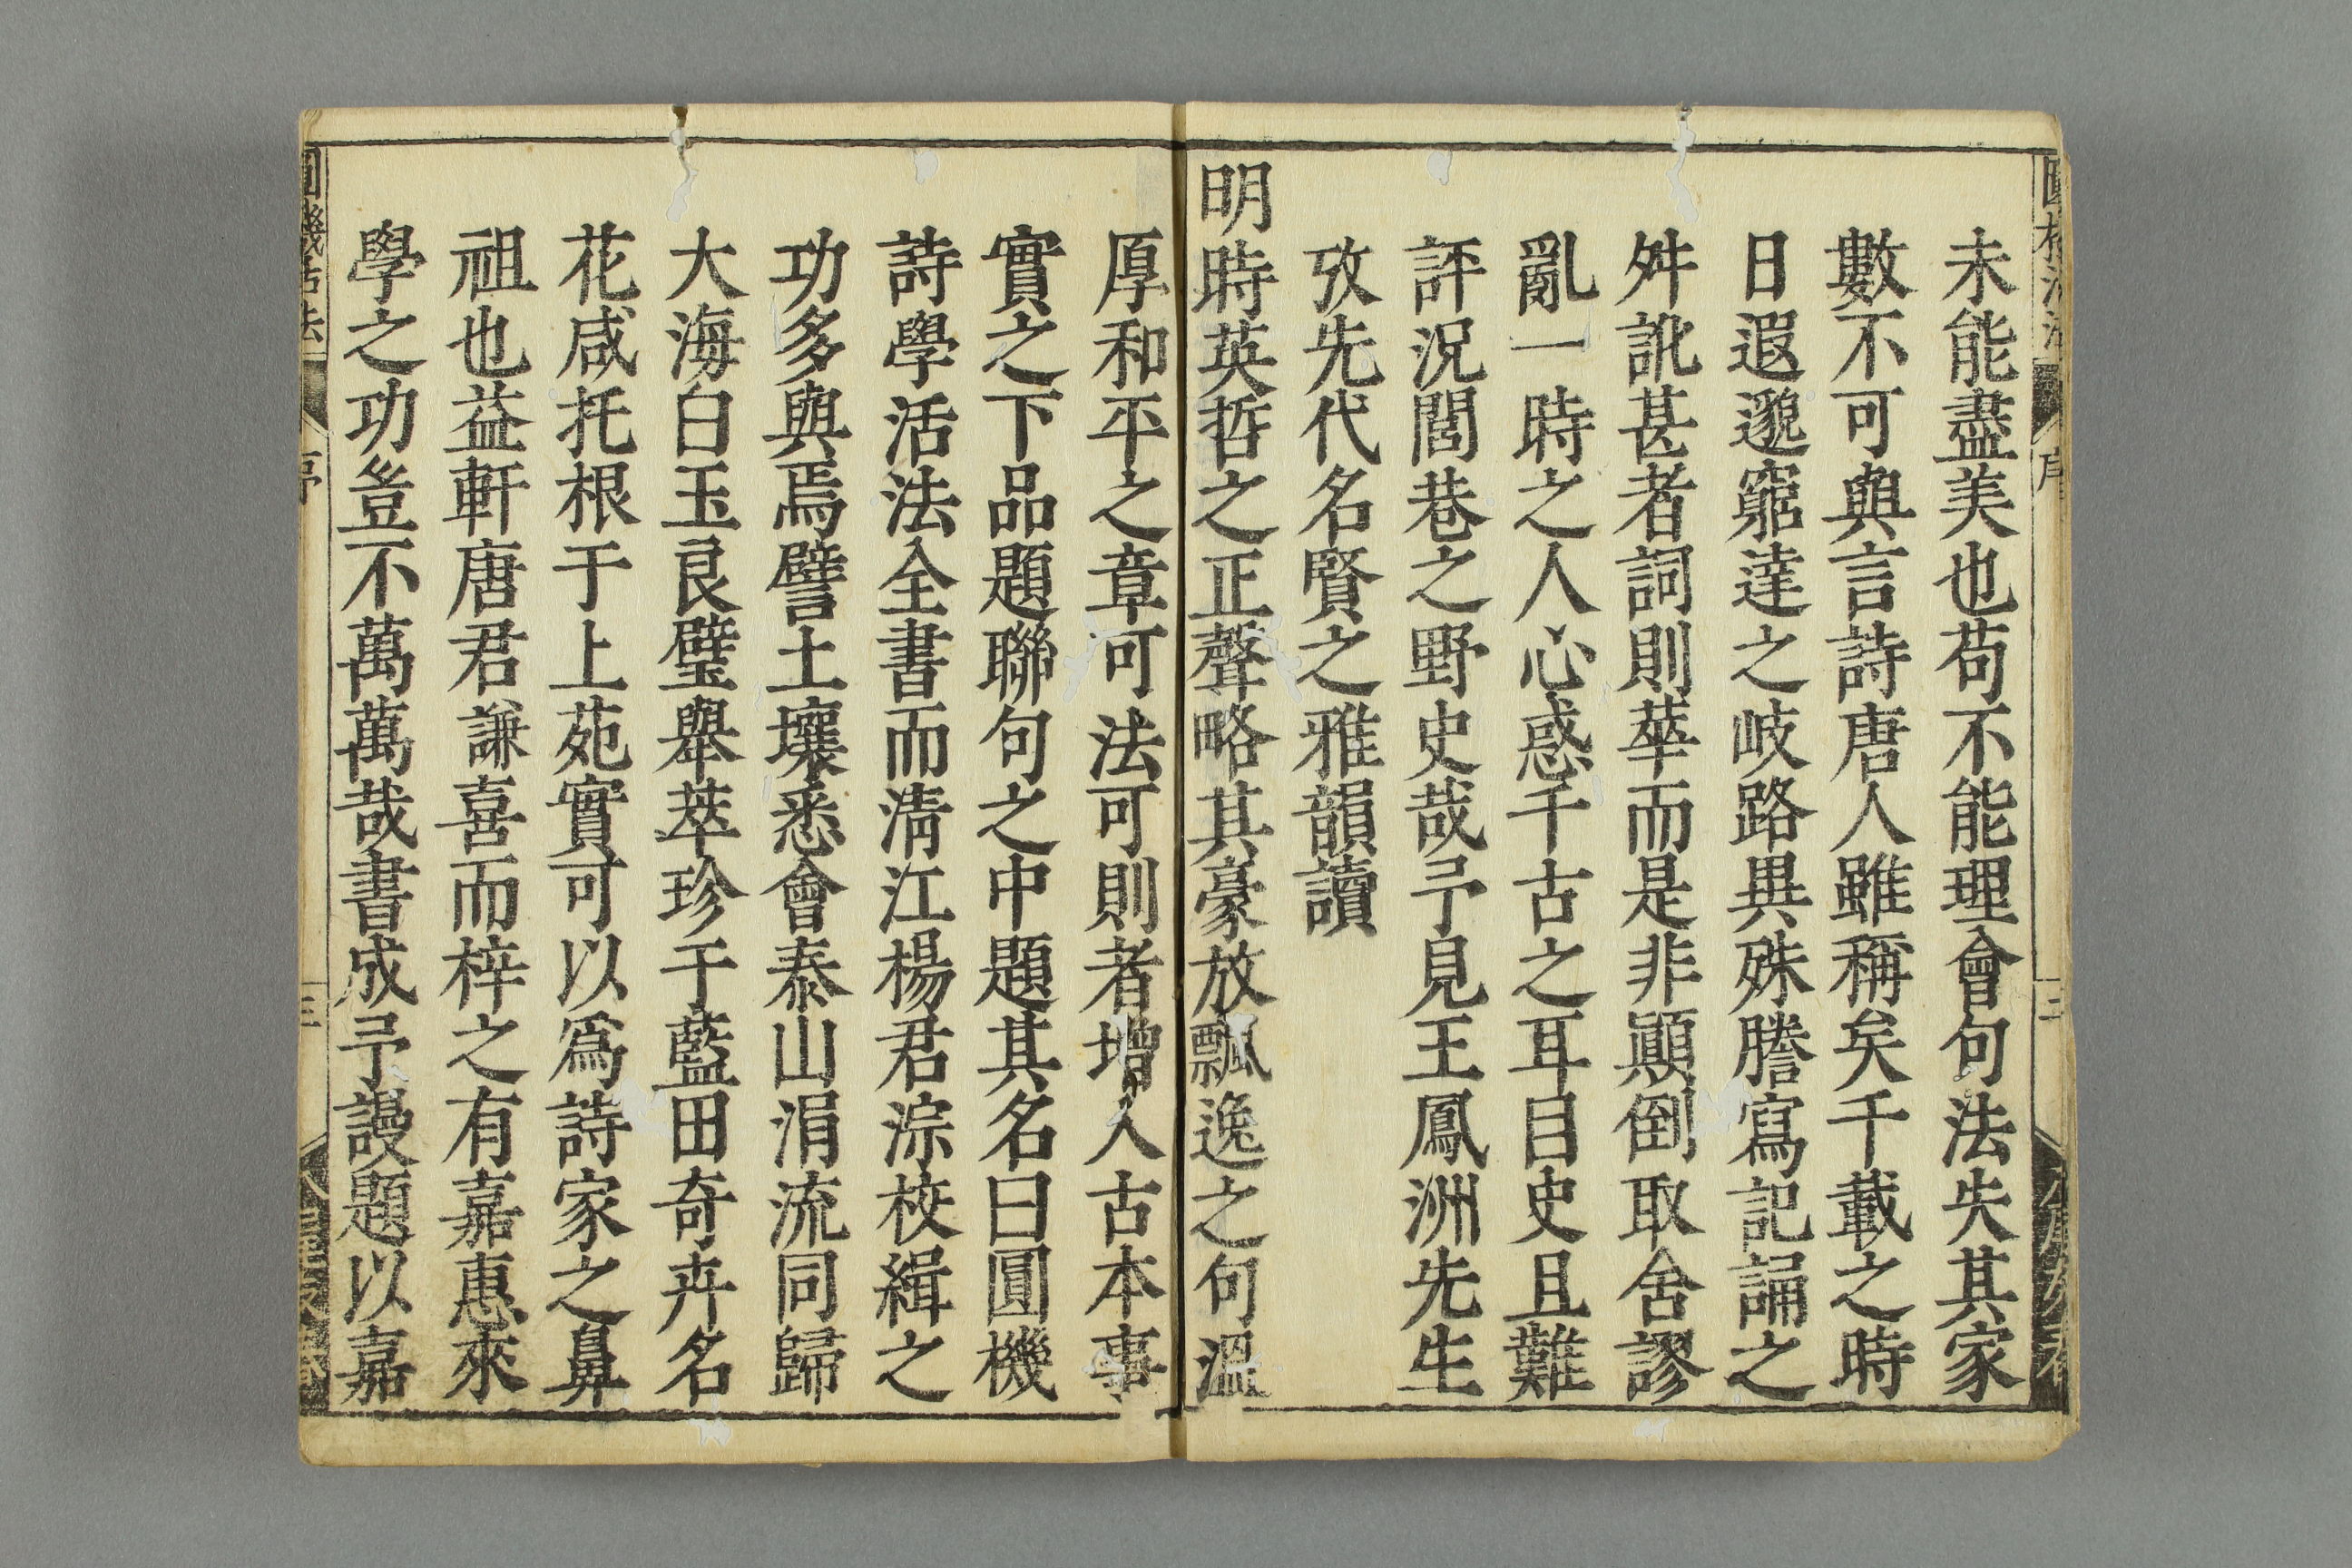 未能盡美也苟不能理會句法失其家
數不可與言詩唐人雖稱矣千載之時
日遐邈窮達之岐路異殊謄寫記誦之
舛訛甚者詞則葷而是非顚倒取舍謬
亂一時之人心惑千古之耳目史且難
評況閭巷之野史哉予見王鳳洲先生
攷先代名賢之雅韻讀
明時英哲之正聲略其豪放飄逸之句溫
厚和平之章可法可則者增入古本事
實之下品題聯句之中題其名曰圓機
詩學活法全書而淸江楊君淙校緝之
功多與焉譬土壤悉會泰山涓流同歸
大海白玉良璧舉萃珍于藍田奇卉名
花咸托根于上苑實可以爲詩家之鼻
祖也益軒唐君謙喜而梓之有嘉惠來
學之功豈不萬萬哉書成予謾題以嘉
圓機活法
序
三